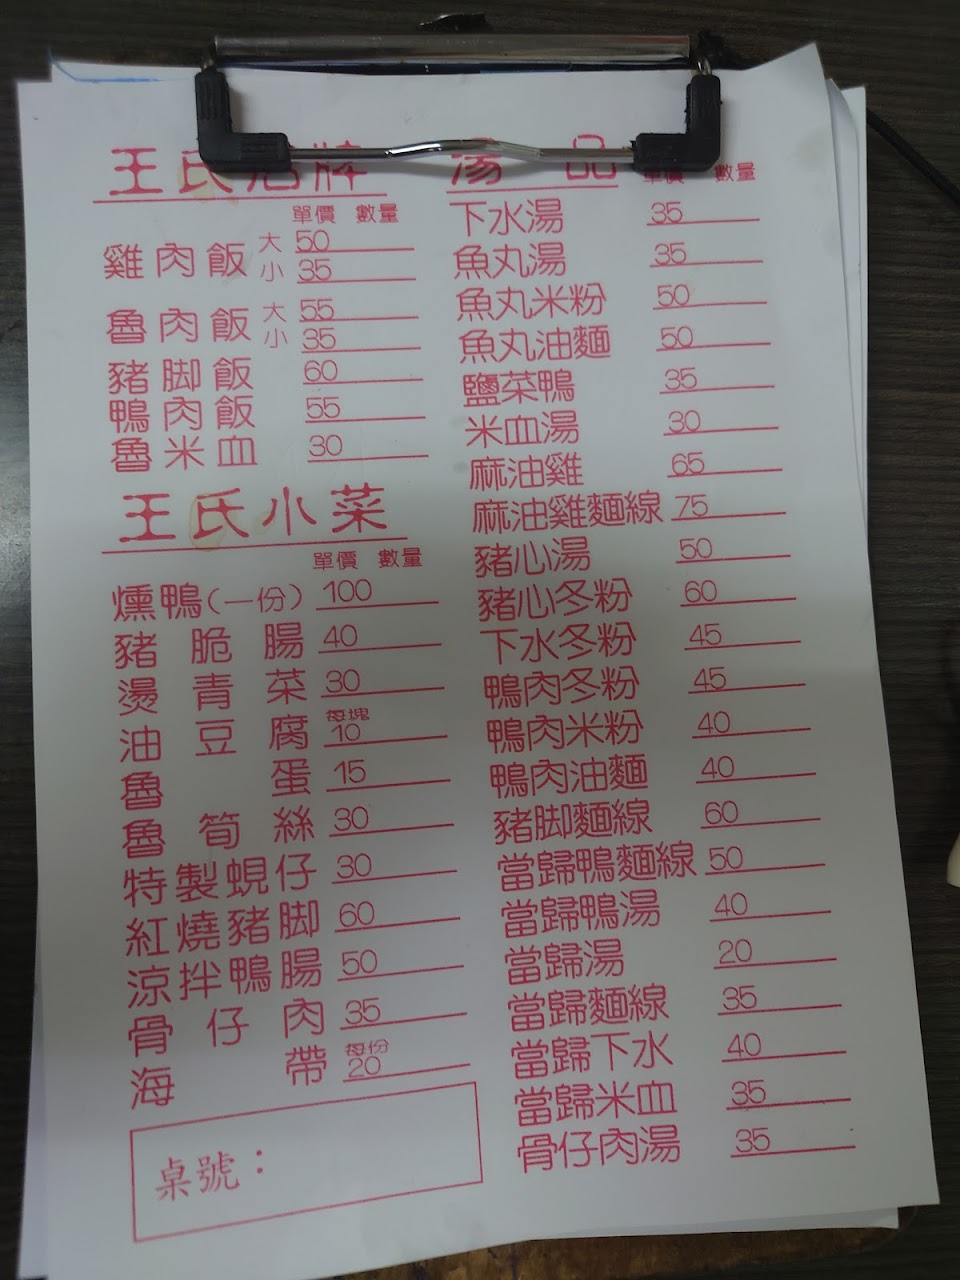 王氏招牌
單價 數量
雞肉飯 大 50
小 35
魯肉飯 大 55
小 35
豬脚飯 60
鴨肉飯 55
魯米血 30
王氏小菜
單價 數量
燻鴨(一份) 100
豬脆腸 40
燙青菜 30
油豆腐 每塊 10
魯蛋 15
魯筍絲 30
特製蜆仔 30
紅燒豬脚 60
涼拌鴨腸 50
骨仔肉 35
海帶 每份 20
桌號：
湯品
單價 數量
下水湯 35
魚丸湯 35
魚丸米粉 50
魚丸油麵 50
鹽菜鴨 35
米血湯 30
麻油雞 65
麻油雞麵線 75
豬心湯 50
豬心冬粉 60
下水冬粉 45
鴨肉冬粉 45
鴨肉米粉 40
鴨肉油麵 40
豬脚麵線 60
當歸鴨麵線 50
當歸鴨湯 40
當歸湯 20
當歸麵線 35
當歸下水 40
當歸米血 35
骨仔肉湯 35